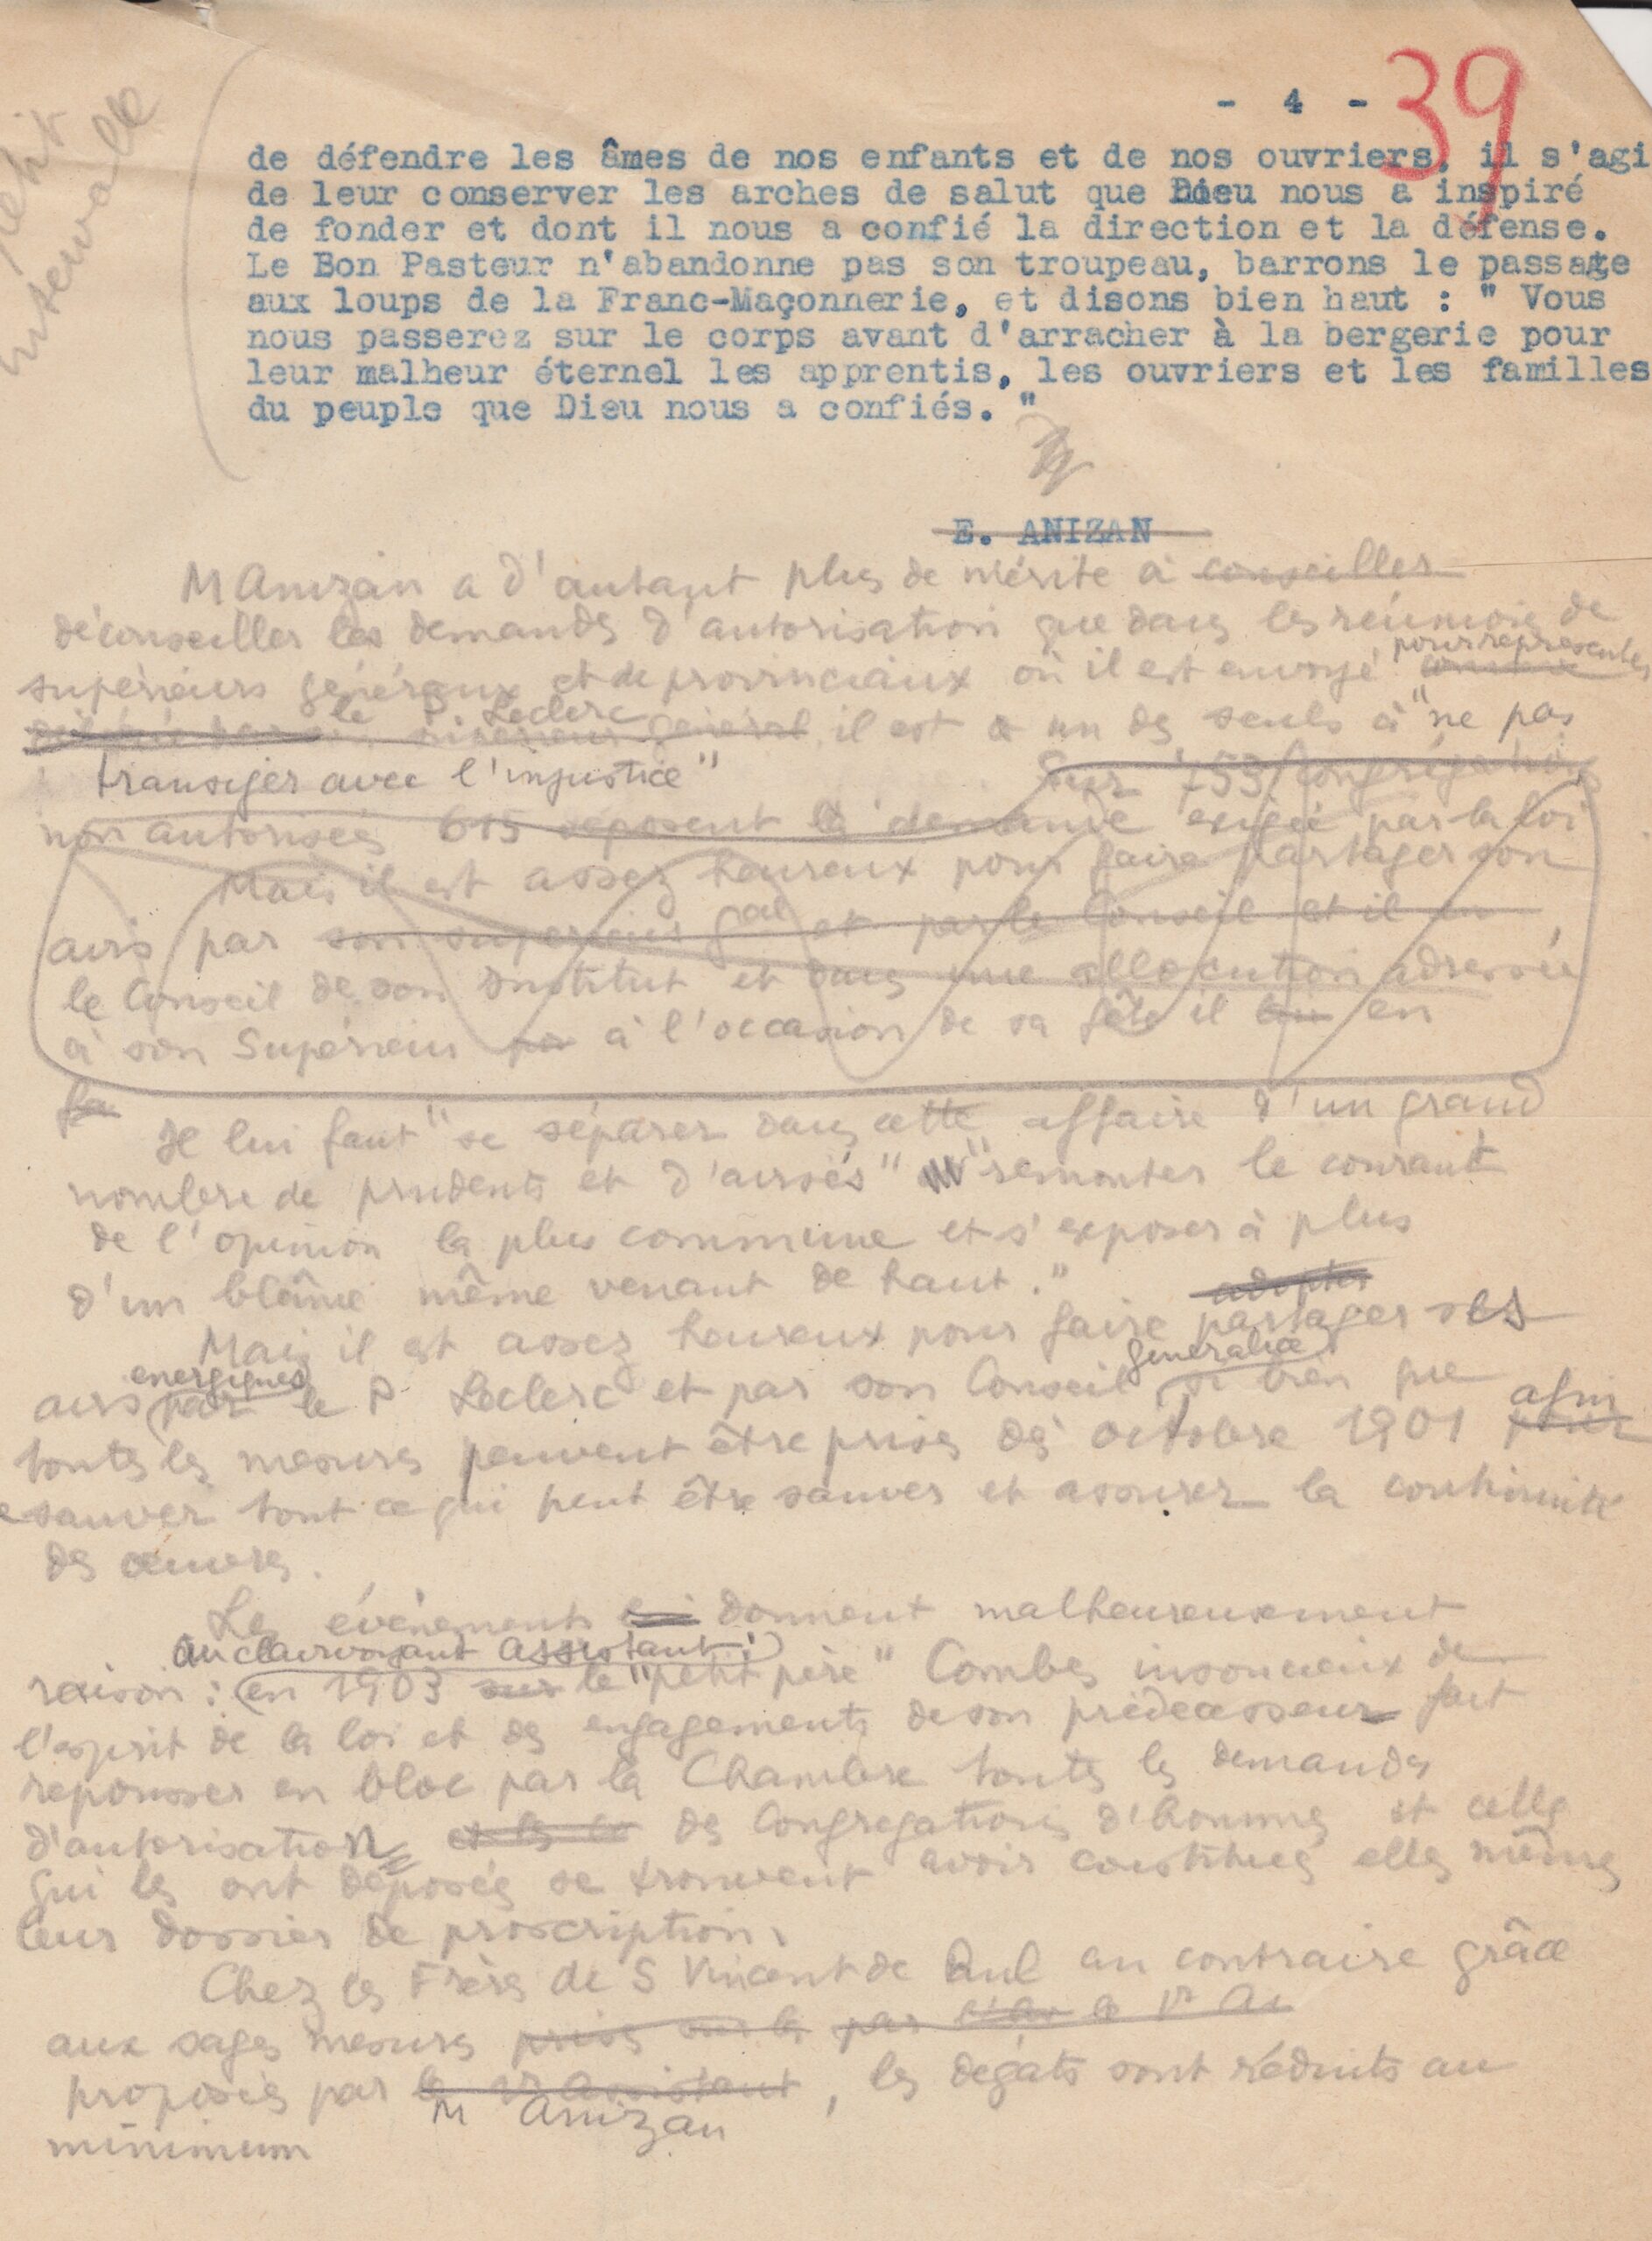 - 4 - 39
petit
intervalle
de défendre les âmes de nos enfants et de nos ouvriers, il s'agi
de leur conserver les arches de salut que Dieu nous a inspiré
de fonder et dont il nous a confié la direction et la défense.
Le Bon Pasteur n'abandonne pas son troupeau, barrons le passage
aux loups de la Franc-Maçonnerie, et disons bien haut : " Vous
nous passerez sur le corps avant d'arracher à la bergerie pour
leur malheur éternel les apprentis, les ouvriers et les familles
du peuple que Dieu nous a confiés. "
E. ANIZAN
M Anizan a d'autant plus de mérite à conseiller
déconseiller les demandes d'autorisation que dans les réunions de
pour représenter
supérieurs généraux et de provinciaux où il est envoyé
le P. Leclerc
supérieur général il est un des seuls à "ne pas
transiger avec l'injustice" Sur 753 Congrégations
non autorisées 615 déposent la demande exigée par la loi
Mais il est assez heureux pour faire partager son
avis par son supérieur gal et par le Conseil et il en
le Conseil de son Institut et dans une allocution adressée
à son Supérieur à l'occasion de sa fête il lui en
fa
Il lui faut "se séparer dans cette affaire d'un grand
nombre de prudents et d'avisés" "remonter le courant
de l'opinion la plus commune et s'exposer à plus
d'un blâme même venant de haut."
adopter
Mais il est assez heureux pour faire partager ses
energiques généralice
avis par le P Leclerc et par son Conseil si bien que
afin
toutes les mesures peuvent être prises dès octobre 1901 pour
e sauver tout ce qui peut être sauver et assurer la continuité
des œuvres.
Les événements donnent malheureusement
au clairvoyant assistant :
raison : en 1903 sur le "petit père" Combes insoucieux de
l'esprit de la loi et des engagements de son prédecesseur fait
repousser en bloc par la Chambre toutes les demandes
d'autorisation et les des Congregations d'hommes et celles
qui les ont déposées se trouvent avoir constitués elles mêmes
leur dossier de proscription.
Chez les Frères de S Vincent de Paul au contraire grâce
aux sages mesures prises sur la par le 1r As
proposées par le 1r Assistant, les dégâts sont réduits au
M Anizan
minimum